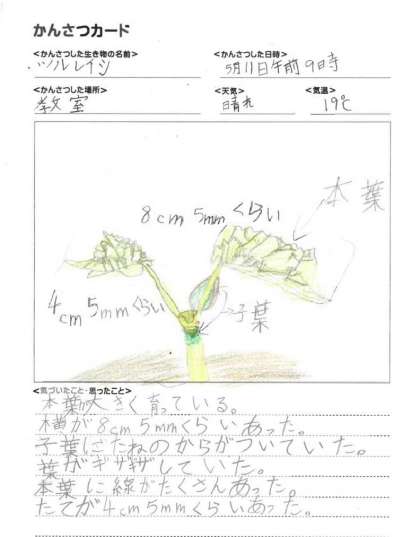 かんさつカード
<かんさつした生き物の名前>
ツルレイシ
<かんさつした日時>
5月11日午前9時
<かんさつした場所>
教室
<天気>
晴れ
<気温>
19℃
本葉
8cm 5mmくらい
4cm 5mmくらい
子葉
<気づいたこと・思ったこと>
本葉が大きく育っている。
横が8cm5mmくらいあった。
子葉にたねのからがついていた。
葉がギザギザしていた。
本葉に線がたくさんあった。
たてが4cm5mmくらいあった。